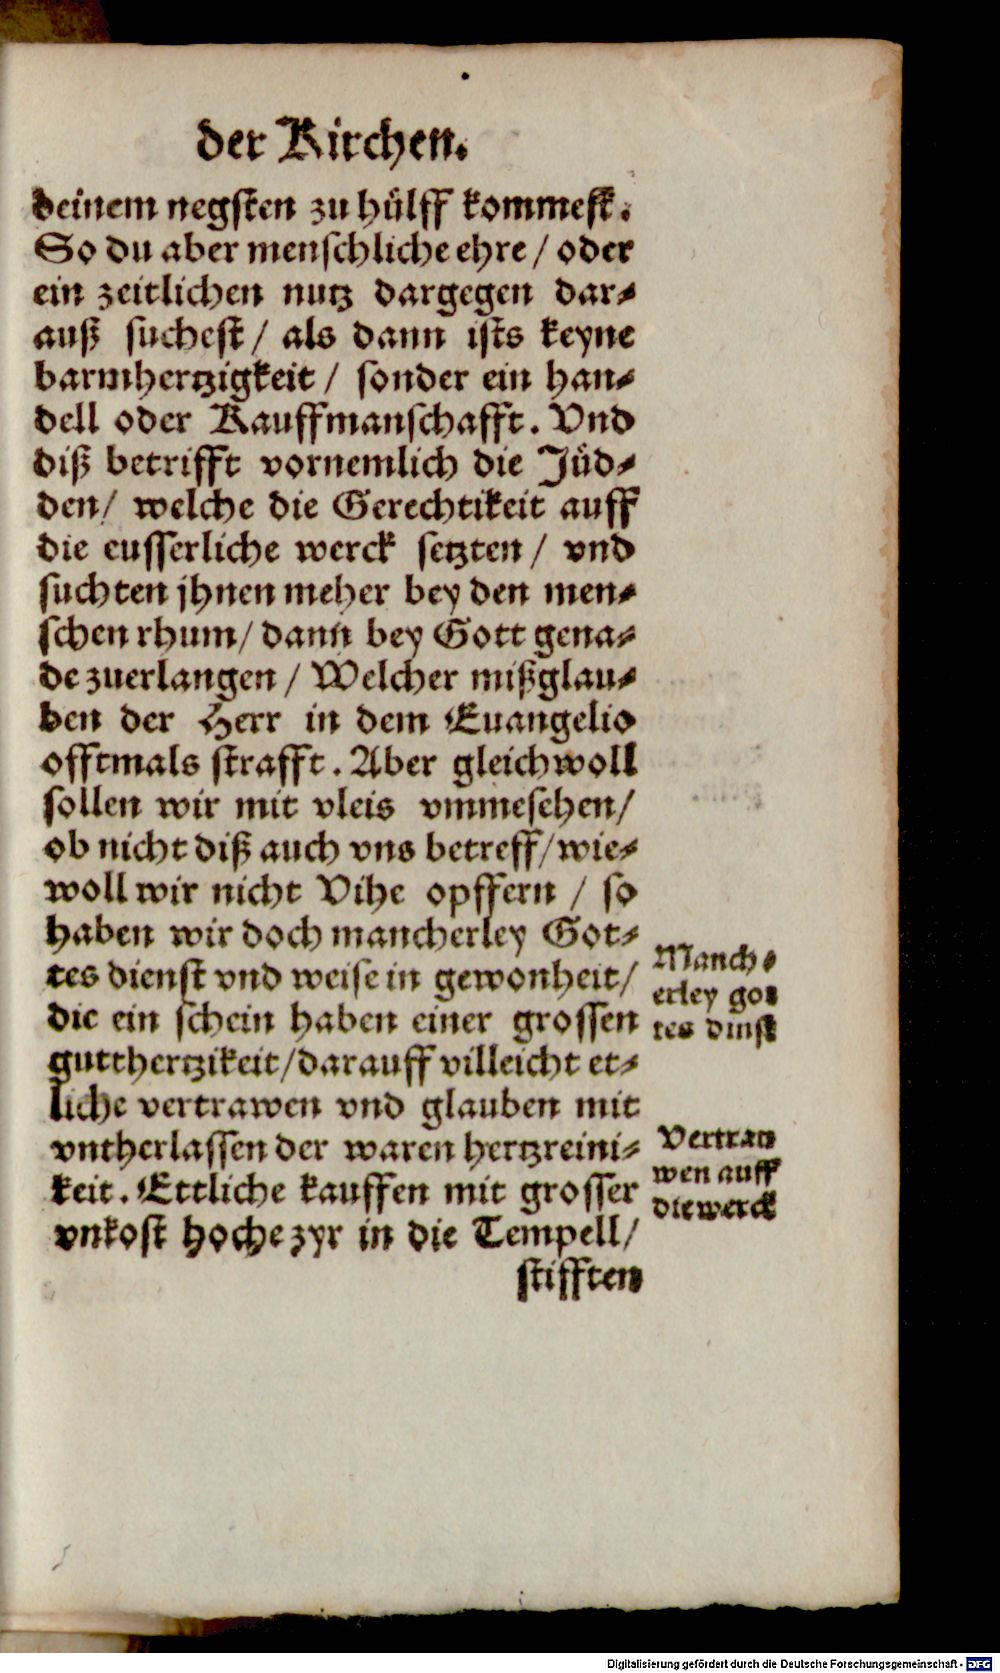 der Kirchen.
deinem negsten zu hülff kommest.
So du aber menschliche ehre / oder
ein zeitlichen nutz dargegen dar⸗
auß suchest / als dann ists keyne
barmhertzigkeit / sonder ein han⸗
dell oder Kauffmanschafft. Vnd
diß betrifft vornemlich die Jüd⸗
den / welche die Gerechtikeit auff
die eusserliche werck setzten / vnd
suchten jhnen meher bey den men⸗
schen rhum / dann bey Gott gena⸗
de zuerlangen / Welcher mißglau⸗
ben der Herr in dem Euangelio
offtmals strafft. Aber gleichwoll
sollen wir mit vleis vmmesehen /
ob nicht diß auch vns betreff / wie⸗
woll wir nicht Vihe opffern / so
haben wir doch mancherley Got⸗
tes dienst vnd weise in gewonheit /
die ein schein haben einer grossen
gutthertzikeit / darauff villeicht et⸗
liche vertrawen vnd glauben mit
vntherlassen der waren hertzreini⸗
keit. Ettliche kauffen mit grosser
vnkost hoche zyr in die Tempell /
stifften
Manch⸗
erley got
tes dinst
Vertraw
wen auff
die werck
Digitalisierung gefördert durch die Deutsche Forschungsgemeinschaft - DFG